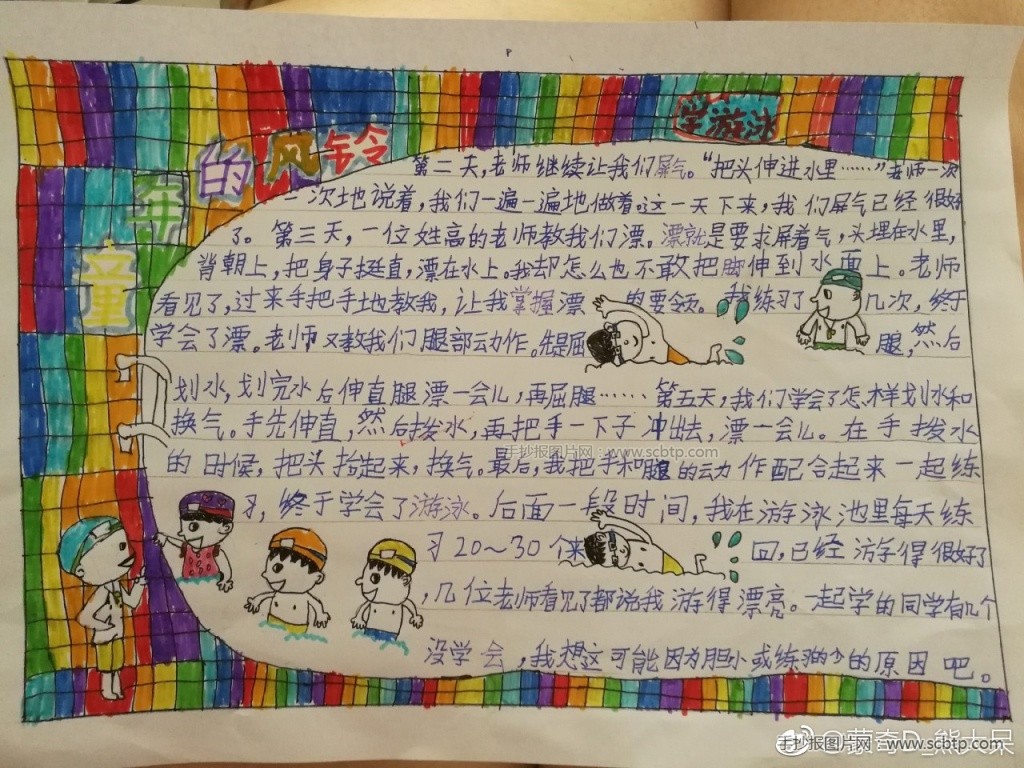 学游泳
童年的风铃
第二天,老师继续让我们屏气。“把头伸进水里……”老师一次
一次地说着,我们一遍一遍地做着。这一天下来,我们屏气已经很好
了。第三天,一位姓高的老师教我们漂。漂就是要求屏着气,头埋在水里,
背朝上,把身子挺直,漂在水上。我却怎么也不敢把脚伸到水面上。老师
看见了,过来手把手地教我,让我掌握漂的要领。我练习了几次,终于
学会了漂。老师又教我们腿部动作。先是屈腿,然后
划水,划完水后伸直腿漂一会儿,再屈腿……第五天,我们学会了怎样划水和
换气。手先伸直,然后拨水,再把手一下子冲出去,漂一会儿。在手拨水
手抄报图片网 www.scbtp.com
的时候,把头抬起来,换气。最后,我把手和腿的动作配合起来一起练
习,终于学会了游泳。后面一段时间,我在游泳池里每天练
习20～30个来回,已经游得很好了
,几位老师看见了都说我游得漂亮。一起学的同学有几个
没学会,我想这可能因为胆小或练习的少的原因吧。
@蒙奇D_熊大呆
手抄报图片网 www.scbtp.com